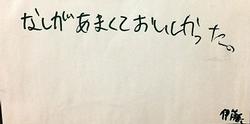 なしがあまくておいしかった。
伊藤